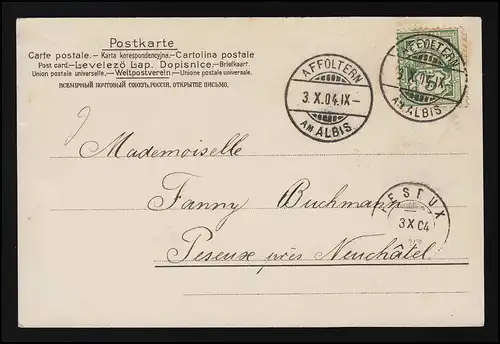 Postkarte
Carte postale.— Karta korespondencyjna.— Cartolina postale
Post card.— Levelező Lap. Dopisnice.— Briefkaart.
Union postale universelle.— Weltpostverein — Unione postale universale.
ВСЕМІРНЫЙ ПОЧТОВЫЙ СОЮЗЪ.РОССІЯ, ОТКРЫТОЕ ПИСЬМО.
AFFOLTERN
3.X.04.IX—
AM ALBIS
AFFOLTERN
3.X.04.IX—
AM ALBIS
5
Mademoiselle
Fanny Buchmann
PESEUX
3 X 04
Peseux près Neuchâtel